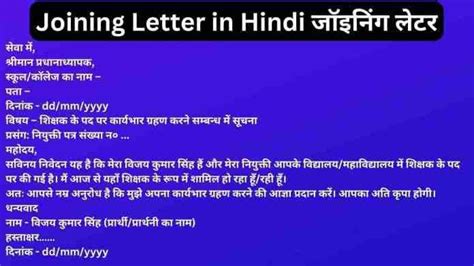 Joining Letter in Hindi जॉइनिंग लेटर
सेवा में,
श्रीमान प्रधानाध्यापक,
स्कूल/कॉलेज का नाम –
पता –
दिनांक - dd/mm/yyyy
विषय – शिक्षक के पद पर कार्यभार ग्रहण करने सम्बन्ध में सूचना
प्रसंग: नियुक्ती पत्र संख्या न० ...
महोदय,
सविनय निवेदन यह है कि मेरा विजय कुमार सिंह हैं और मेरा नियुक्ती आपके विद्यालय/महाविद्यालय में शिक्षक के पद
पर की गई है। मैं आज से यहाँ शिक्षक के रूप में शामिल हो रहा हूँ/रही हूँ।
अतः आपसे नम्र अनुरोध है कि मुझे अपना कार्यभार ग्रहण करने की आज्ञा प्रदान करें। आपका अति कृपा होगी।
धन्यवाद
नाम - विजय कुमार सिंह (प्रार्थी/प्रार्थनी का नाम)
हस्ताक्षर......
दिनांक - dd/mm/yyyy